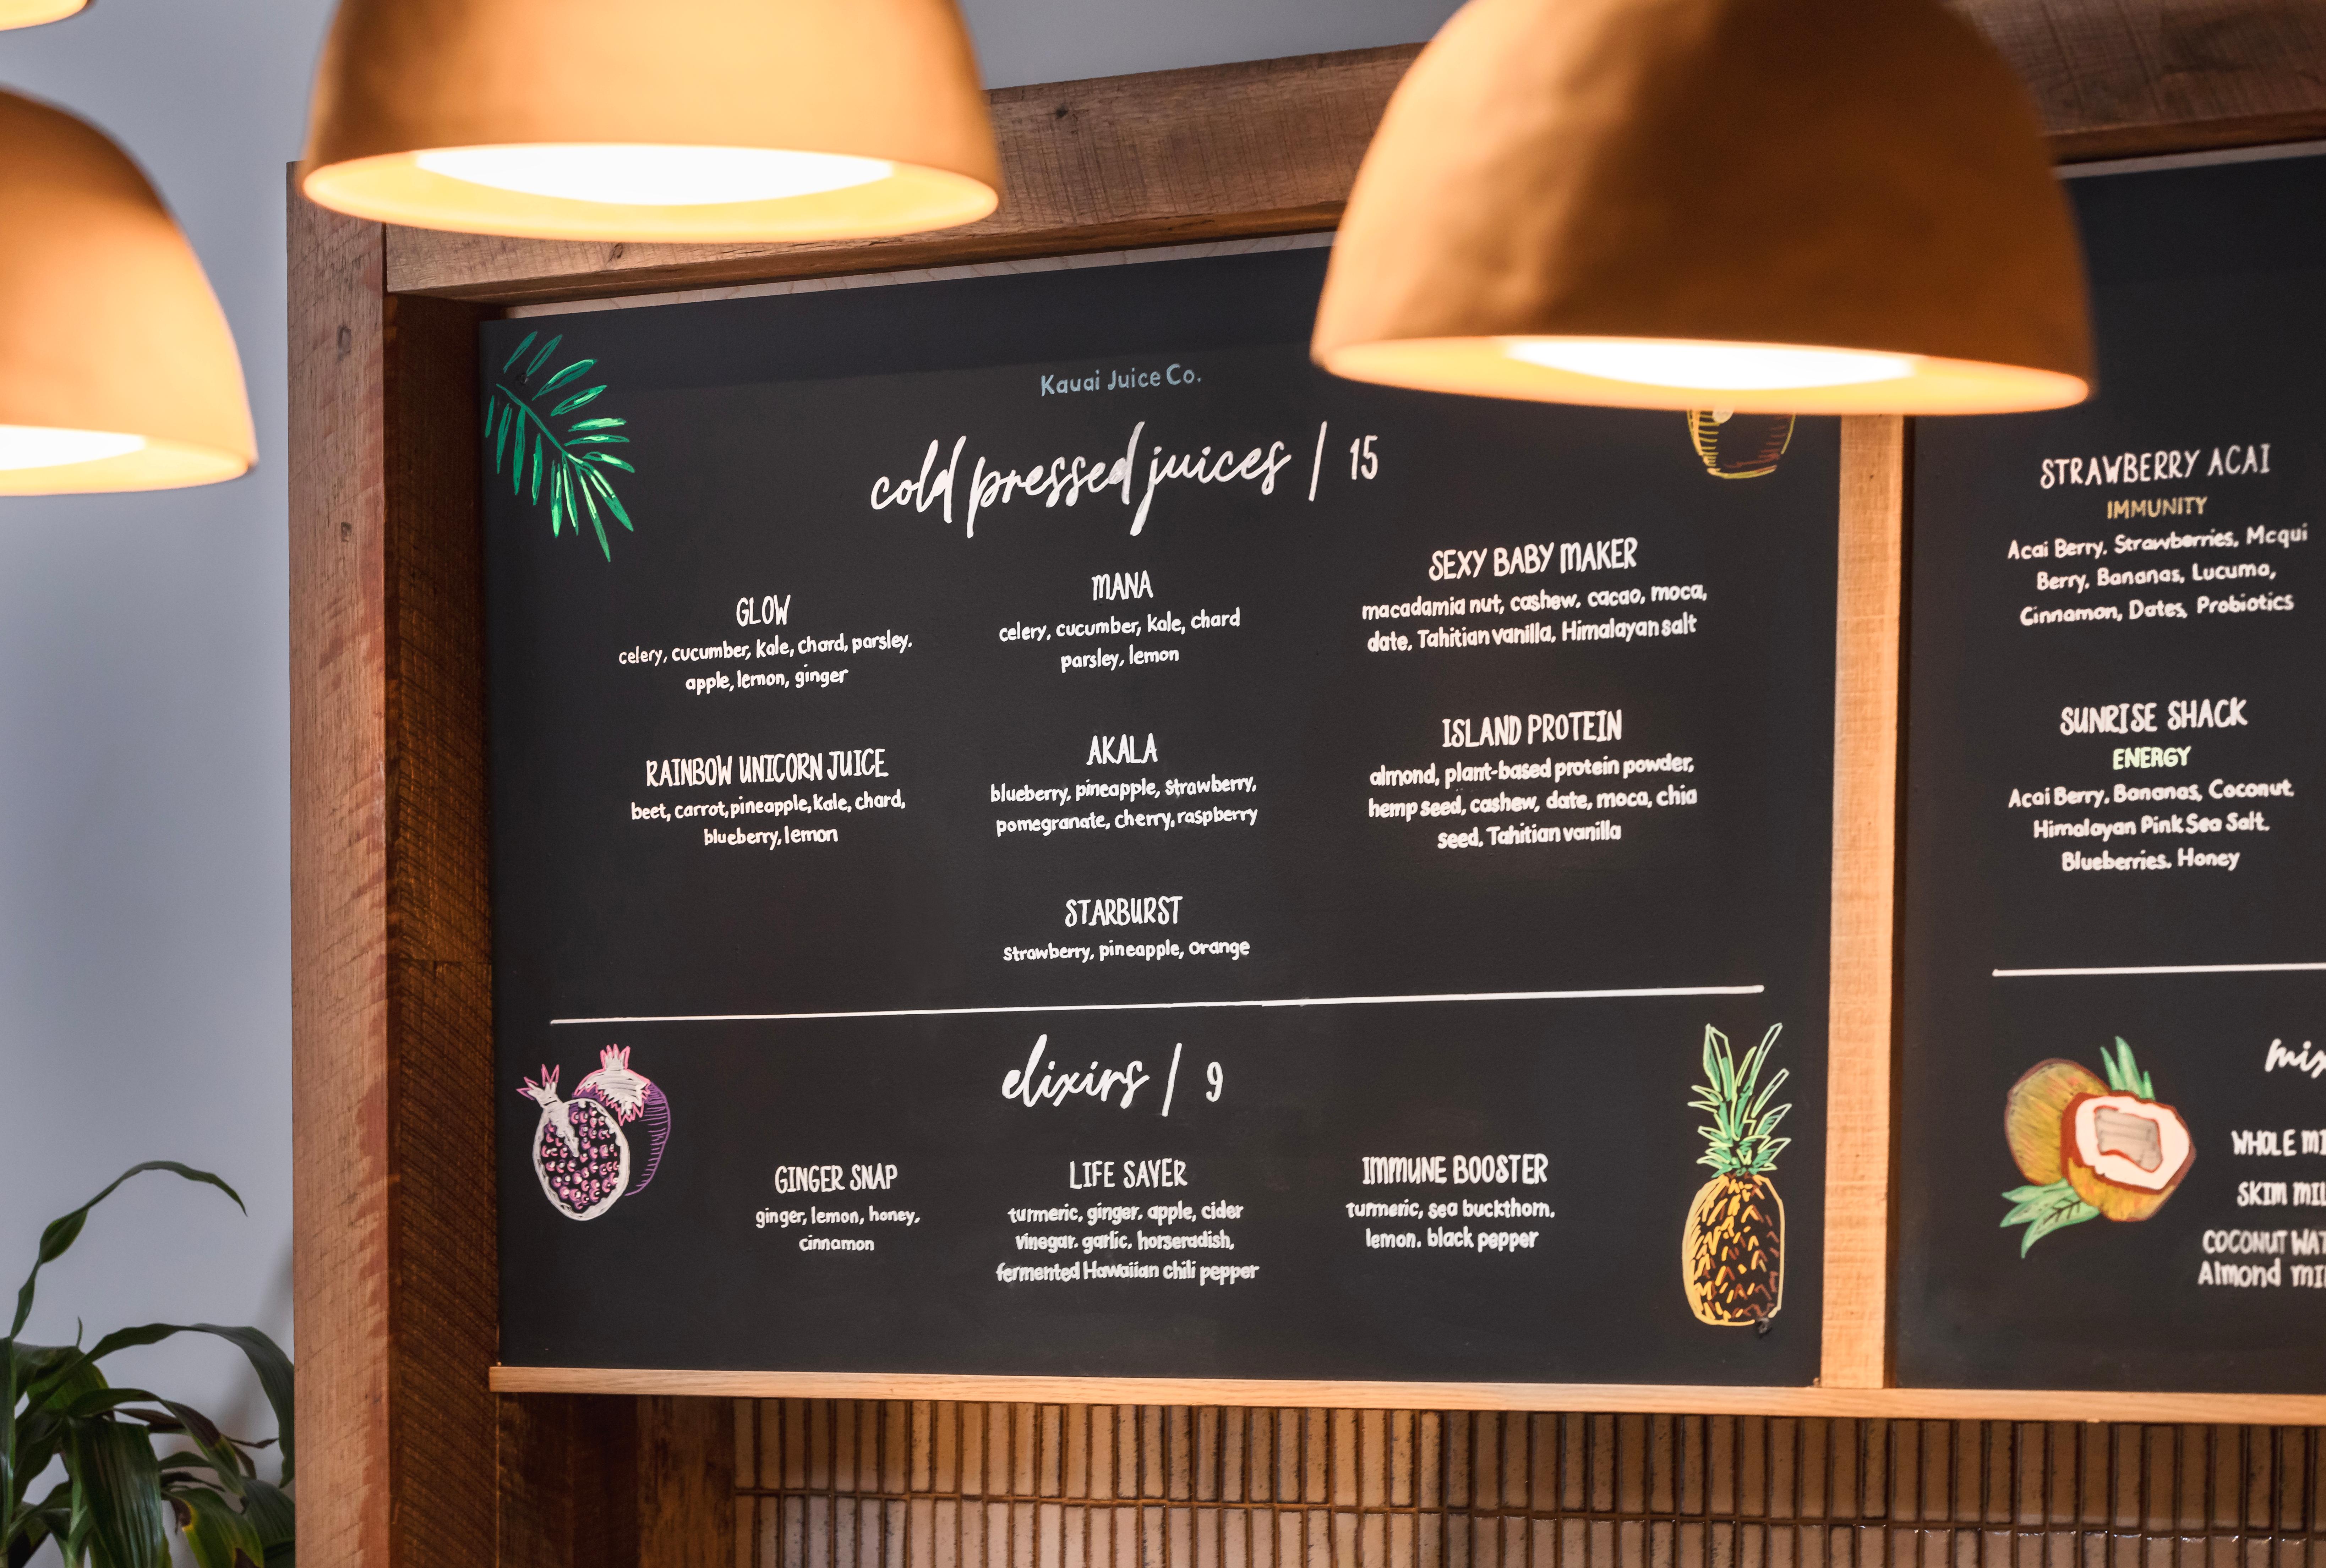 Kauai Juice Co.
cold pressed juices / 15
GLOW
celery, cucumber, kale, chard, parsley,
apple, lemon, ginger
RAINBOW UNICORN JUICE
beet, carrot, pineapple, kale, chard,
blueberry, lemon
MANA
celery, cucumber, kale, chard
parsley, lemon
AKALA
blueberry, pineapple, strawberry,
pomegranate, cherry, raspberry
STARBURST
strawberry, pineapple, orange
SEXY BABY MAKER
macadamia nut, cashew, cacao, moca,
date, Tahitian vanilla, Himalayan salt
ISLAND PROTEIN
almond, plant-based protein powder,
hemp seed, cashew, date, moca, chia
seed, Tahitian vanilla
elixirs / 9
GINGER SNAP
ginger, lemon, honey,
cinnamon
LIFE SAVER
turmeric, ginger, apple, cider
vinegar, garlic, horseradish,
fermented Hawaiian chili pepper
IMMUNE BOOSTER
turmeric, sea buckthorn,
lemon, black pepper
STRAWBERRY ACAI
IMMUNITY
Acai Berry, Strawberries, Mcqui
Berry, Bananas, Lucuma,
Cinnamon, Dates, Probiotics
SUNRISE SHACK
ENERGY
Acai Berry, Bananas, Coconut,
Himalayan Pink Sea Salt,
Blueberries, Honey
WHOLE
SKIM
COCONUT
Almond